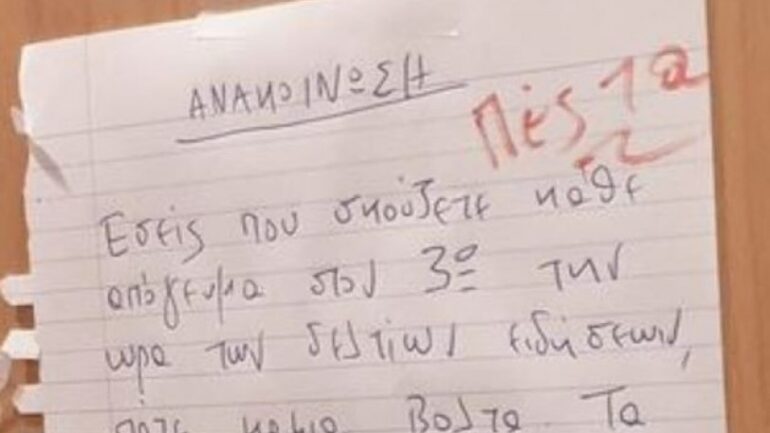 ΑΝΑΚΟΙΝΩΣΗ
Πές τα
Εσείς που σκούζετε κάθε
απόγευμα στον 3º την
ωρα των δελτίων ειδήσεων,
πάτε καμια βολτα. Τα